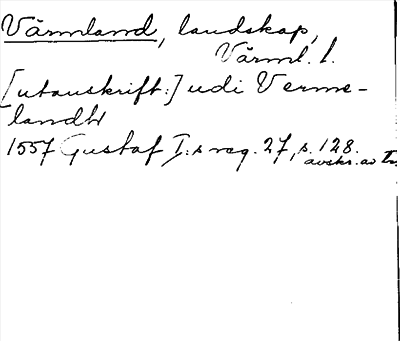 Värmland, landskap,
Värml. l.
[utanskrift:] udi Verme-
landh
1557 Gustaf I:s reg. 27, s. 128.
avskr. av